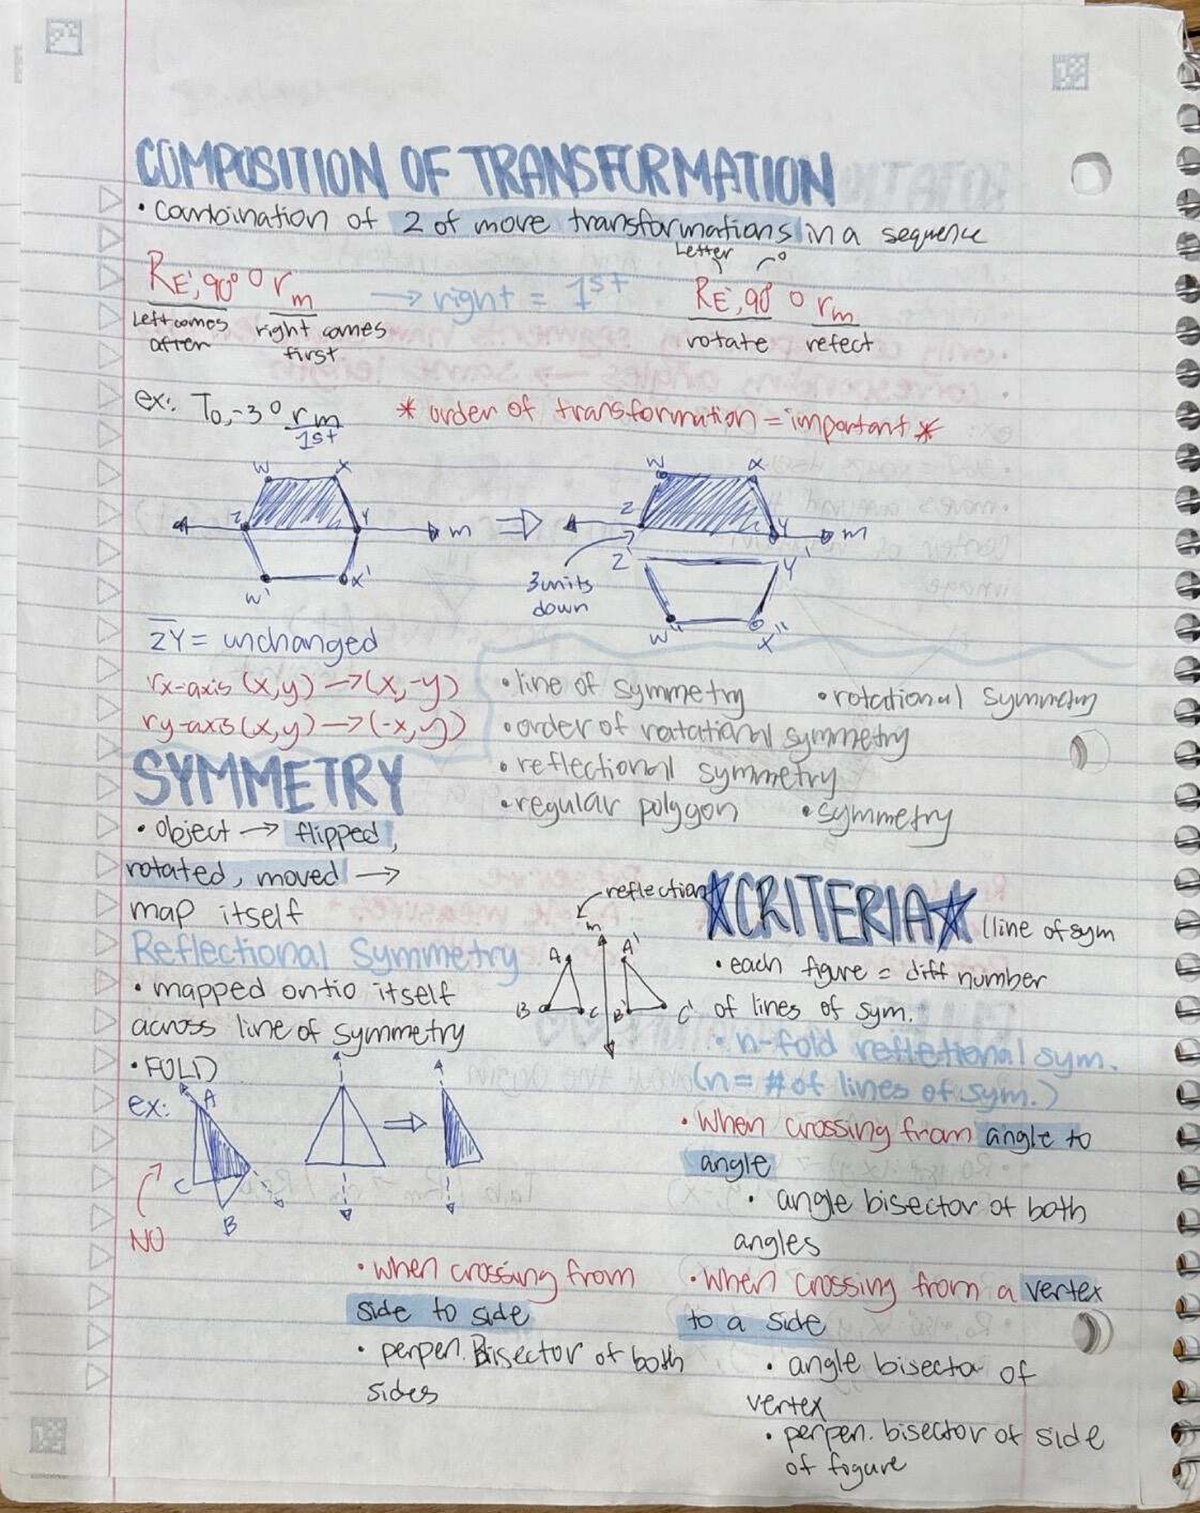 COMPOSITION OF TRANSFORMATION
• combination of 2 of move transformations in a sequence
RE, 90° ∘ rm
Left comes after
right comes first
→ right = 1st
Letter °
RE, 90° ∘ rm
rotate refect
ex: T0,-3 ∘ rm
1st
* order of transformation = important *
W X
Z Y m
W' X'
⇒
W X
Z Y m
3 units down
Z' Y'
W" X"
ZY = unchanged
rx-axis (x,y) → (x,-y)
ry-axis (x,y) → (-x,y)
• line of symmetry • rotational symmetry
• order of rotational symmetry
• reflectional symmetry
• regular polygon • symmetry
SYMMETRY
• object → flipped,
rotated, moved →
map itself
Reflectional Symmetry
• mapped ontio itself
across line of symmetry
• FOLD
ex:
A
C
B
NO
⇒
reflection
m
A A'
B C B' C'
☆CRITERIA☆ (line of sym
• each figure = diff number
of lines of sym.
• n-fold refletional sym.
(n = # of lines of sym.)
• When crossing from angle to
angle
• angle bisector of both
angles
• when crossing from
side to side
• perpen. Bisector of both
sides
• When crossing from a vertex
to a side
• angle bisector of
vertex
• perpen. bisector of side
of figure